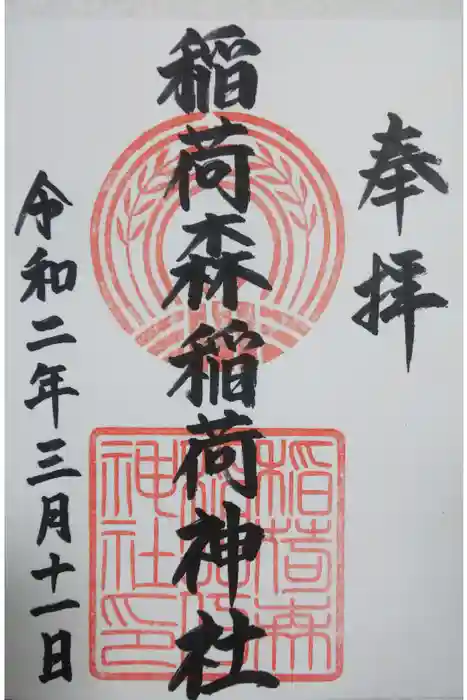 奉拝
稲荷森稲荷神社
令和二年三月十一日
稲荷森
稲荷
神社印